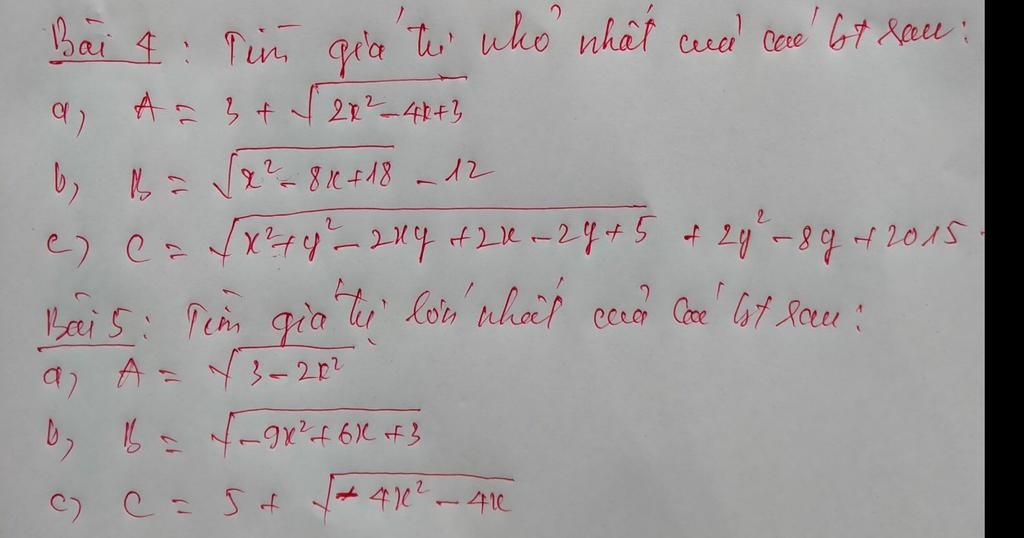 Bài 4 : Tìm giá trị nhỏ nhất của các bt sau :
a, A = 3 + √(2x² - 4x + 3)
b, B = √(x² - 8x + 18) - 12
c) C = √(x² + y² - 2xy + 2x - 2y + 5) + 2y² - 8y + 2015.
Bài 5 : Tìm giá trị lớn nhất của các bt sau :
a, A = √(3 - 2x²)
b, B = √(-9x² + 6x + 3)
c) C = 5 + √(-4x² - 4x)